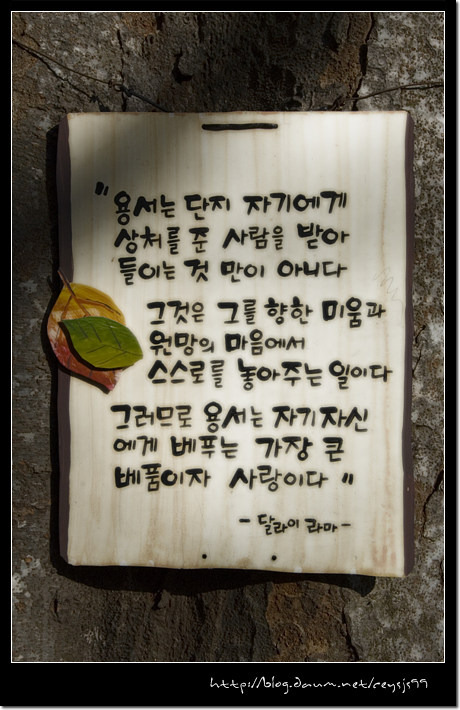 "용서는 단지 자기에게
상처를 준 사람을 받아
들이는 것 만이 아니다
그것은 그를 향한 미움과
원망의 마음에서
스스로를 놓아주는 일이다
그러므로 용서는 자기자신
에게 베푸는 가장 큰
베품이자 사랑이다"
- 달라이 라마 -
http://blog.daum.net/ceysjs99